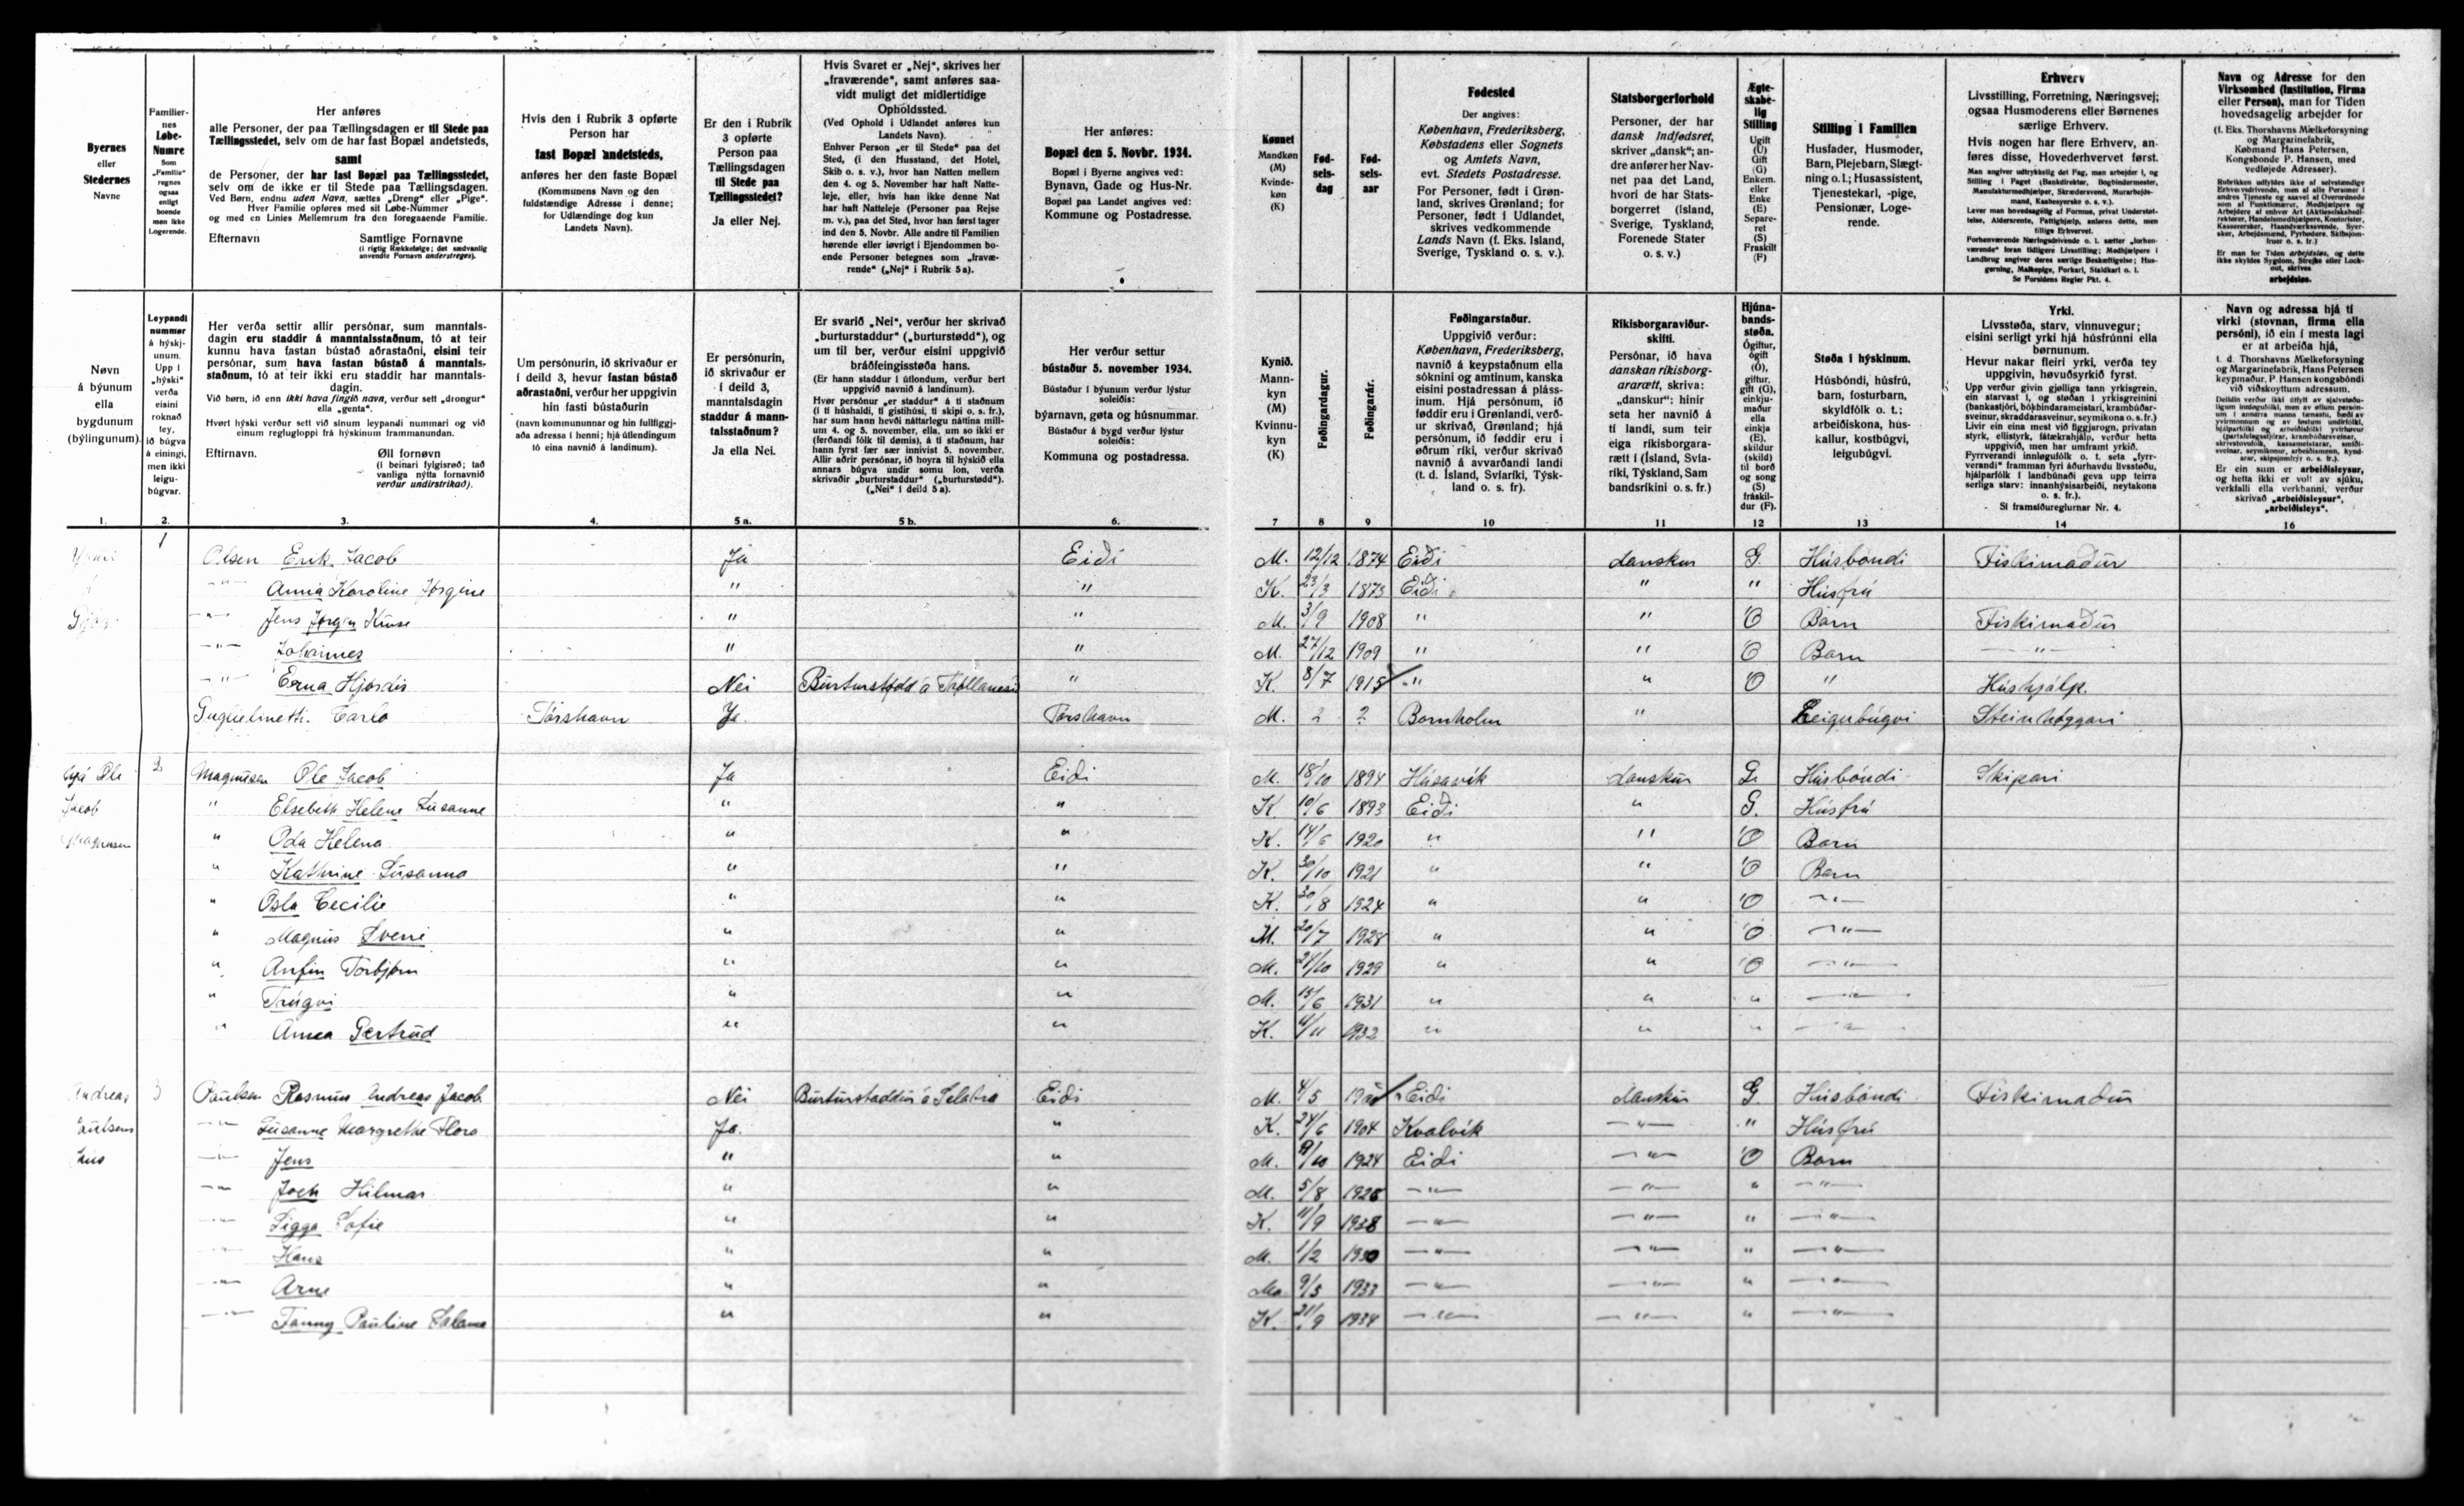 Byernes
eller
Stedernes
Navne
Familier-
nes
Løbe-
Numre
Som
„Familie"
regnes
ogsaa
enligt
boende
men ikke
Logerende.
Her anføres
alle Personer, der paa Tællingsdagen er til Stede paa
Tællingsstedet, selv om de har fast Bopæl andetsteds,
samt
de Personer, der har fast Bopæl paa Tællingsstedet,
selv om de ikke er til Stede paa Tællingsdagen.
Ved Børn, endnu uden Navn, sættes „Dreng" eller „Pige".
Hver Familie opføres med sit Løbe-Nummer
og med en Linies Mellemrum fra den foregaaende Familie.
Efternavn Samtlige Fornavne
(i rigtig Rækkefølge; det sædvanlig
anvendte Fornavn understreges).
Hvis den i Rubrik 3 opførte
Person har
fast Bopæl andetsteds,
anføres her den faste Bopæl
(Kommunens Navn og den
fuldstændige Adresse i denne;
for Udlændinge dog kun
Landets Navn).
Er den i Rubrik
3 opførte
Person paa
Tællingsdagen
til Stede paa
Tællingsstedet?
Ja eller Nej.
Hvis Svaret er „Nej", skrives her
„fraværende", samt anføres saa-
vidt muligt det midlertidige
Opholdssted.
(Ved Ophold i Udlandet anføres kun
Landets Navn).
Enhver Person „er til Stede" paa det
Sted, (i den Husstand, det Hotel,
Skib o. s. v.), hvor han Natten mellem
den 4. og 5. November har haft Natte-
leje, eller, hvis han ikke denne Nat
har haft Natteleje (Personer paa Rejse
m. v.), paa det Sted, hvor han først tager
ind den 5. Novbr. Alle andre til Familien
hørende eller iøvrigt i Ejendommen bo-
ende Personer betegnes som „fravæ-
rende" („Nej" i Rubrik 5 a).
Her anføres:
Bopæl den 5. Novbr. 1934.
Bopæl i Byerne angives ved:
Bynavn, Gade og Hus-Nr.
Bopæl paa Landet angives ved:
Kommune og Postadresse.
Kønnet
Mandkøn
(M)
Kvinde-
køn
(K)
Fød-
sels-
dag
Fød-
sels-
aar
Fødested
Der angives:
København, Frederiksberg,
Købstadens eller Sognets
og Amtets Navn,
evt. Stedets Postadresse.
For Personer, født i Grøn-
land, skrives Grønland; for
Personer, født i Udlandet,
skrives vedkommende
Lands Navn (f. Eks. Island,
Sverige, Tyskland o. s. v.).
Statsborgerforhold
Personer, der har
dansk Indfødsret,
skriver „dansk"; an-
dre anfører her Nav-
net paa det Land,
hvori de har Stats-
borgerret (Island,
Sverige, Tyskland,
Forenede Stater
o. s. v.)
Ægte-
skabe-
lig
Stilling
Ugift
(U)
Gift
(G)
Enkem.
eller
Enke
(E)
Separe-
ret (S)
Fraskilt
(F)
Stilling i Familien
Husfader, Husmoder,
Barn, Plejebarn, Slægt-
ning o. l.; Husassistent,
Tjenestekarl, -pige,
Pensionær, Loge-
rende.
Erhverv
Livsstilling, Forretning, Næringsvej;
ogsaa Husmoderens eller Børnenes
særlige Erhverv.
Hvis nogen har flere Erhverv, an-
føres disse, Hovederhvervet først.
Man angiver udtrykkelig det Fag, man arbejder i, og
Stilling i Faget (Bankdirektør, Bogbindermester,
Manufakturmedhjælper, Skrædersvend, Murarbejds-
mand, Kaabesyerske o. s. v.).
Lever man hovedsagelig af Formue, privat Understøt-
telse, Aldersrente, Fattighjælp, anføres dette, men
tillige Erhvervet.
Forhenværende Næringsdrivende o. l. sætter „forhen-
værende" foran tidligere Livsstilling; Medhjælpere i
Landbrug angiver deres særlige Beskæftigelse; Hus-
gerning, Malkepige, Forkarl, Staldkarl o. l.
Se Forsidens Regler Pkt. 4.
Navn og Adresse for den
Virksomhed (Institution, Firma
eller Person), man for Tiden
hovedsagelig arbejder for
(f. Eks. Thorshavns Mælkeforsyning
og Margarinefabrik,
Købmand Hans Petersen,
Kongsbonde P. Hansen, med
vedføjede Adresser).
Er man for Tiden arbejdsløs, og dette
ikke skyldes Sygdom, Strejke eller Lock-
out, skrives
arbejdsløs.
Nøvn
á býunum
ella
bygdunum
(býlingunum).
Leypandi
nummør
á hýskj-
unum.
Upp í
„hýski"
verða
eisini
roknað
tey,
ið búgva
á einingi,
men ikki
leigu-
búgvar.
Her verða settir allir persónar, sum manntals-
dagin eru staddir á manntalsstaðnum, tó at teir
kunnu hava fastan bústað aðrastaðni, eisini teir
persónar, sum hava fastan bústað á manntals-
staðnum, tó at teir ikki eru staddir har manntals-
dagin.
Við børn, ið enn ikki hava fingið navn, verður sett „drongur"
ella „genta".
Hvørt hýski verður sett við sínum leypandi nummari og við
einum reglugloppi frá hýskinum frammanundan.
Eftirnavn. Øll fornøvn
(í beinari fylgisrøð; tað
vanliga nýtta fornavnið
verður undirstrikað).
Um persónurin, ið skrivaður er
í deild 3, hevur fastan bústað
aðrastaðni, verður her uppgivin
hin fasti bústaðurin
(navn kommununnar og hin fullfiggj-
aða adressa í henni; hjá útlendingum
tó eina navnið á landinum).
Er persónurin,
ið skrivaður er
í deild 3,
manntalsdagin
staddur á mann-
talsstaðnum?
Ja ella Nei.
Er svarið „Nei", verður her skrivað
„burturstaddur" („burturstødd"), og
um til ber, verður eisini uppgivið
bráðfeingisstøða hans.
(Er hann staddur í útlondum, verður bert
uppgivið navnið á landinum).
Hvør persónur „er staddur" á tí staðnum
(í tí húshaldi, tí gistihúsi, tí skipi o. s. fr.),
har sum hann hevði náttarlegu náttina milli-
um 4. og 5. november, ella, um so ikki er
(ferðandi fólk til dømis), á tí staðnum, har
hann fyrst fær sær innivist 5. november.
Allir aðrir persónar, ið hoyra til hýskið ella
annars búgva undir somu lon, verða
skrivaðir „burturstaddir" („burturstødd").
(„Nei" í deild 5 a)
Her verður settur
bústaður 5. november 1934.
Bústaður í býunum verður lýstur
soleiðis:
býarnavn, gøta og húsnummar.
Bústaður á bygd verður lýstur
soleiðis:
Kommuna og postadressa.
Kynið.
Mann-
kyn
(M)
Kvinnu-
kyn
(K)
Føðingardagur.
Føðingarár.
Føðingarstaður.
Uppgivið verður:
København, Frederiksberg,
navnið á keypstaðnum ella
sóknini og amtinum, kanska
eisini postadressan á pláss-
inum. Hjá persónum, ið
føddir eru í Grønlandi, verð-
ur skrivað, Grønland; hjá
persónum, ið føddir eru í
øðrum ríki, verður skrivað
navnið á avvarðandi landi
(t. d. Ísland, Svíaríki, Týsk-
land o. s. fr).
Ríkisborgaraviður-
skifti.
Persónar, ið hava
danskan ríkisborg-
ararætt, skriva:
„danskur": hinir
seta her navnið á
tí landi, sum teir
eiga ríkisborgara-
rætt í (Ísland, Svía-
ríki, Týskland, Sam
bandsríkini o. s. fr.)
Hjúna-
bands-
støða.
Ógiftur,
ógift
(Ó),
giftur,
gift (G),
einkju-
maður
ella
einkja
(E),
skildur
(skild)
til borð
og song
(S)
fráskil-
dur (F).
Støða í hýskinum.
Húsbóndi, húsfrú,
barn, fosturbarn,
skyldfólk o. t.;
arbeiðiskona, hús-
kallur, kostbúgvi,
leigubúgvi.
Yrki.
Livsstøða, starv, vinnuvegur;
eisini serligt yrki hjá húsfrúnni ella
børnunum.
Hevur nakar fleiri yrki, verða tey
uppgivin, høvuðsyrkið fyrst.
Si framsíðureglurnar Nr. 4.
Navn og adressa hjá tí
virki (stovnan, firma ella
persóni), ið ein í mesta lagi
er at arbeiða hjá,
t. d. Thorshavns Mælkeforsyning
og Margarinefabrik, Hans Petersen
keypmaður, P. Hansen kongsbóndi
við viðskoyttum adressum.
Er ein sum er arbeiðsleysur,
og hetta ikki er volt av sjúku,
verkfalli ella verkbanni, verður
skrivað „arbeiðisleysur",
„arbeiðisleys".
1. 2. 3. 4. 5 a. 5 b. 6. 7 8 9 10 11 12 13 14 16
1 Olsen Erik Jacob Ja Eiði M. 12/12 1874 Eiði danskur G. Húsbóndi Fiskimaður
-"- Anna Karoline Jørgine " " K. 23/3 1873 Eiði " " Húsfrú
-"- Jens Jørgen Kruse " " M. 3/9 1908 " " Ó Barn Fiskimaður
-"- Johannes " " M. 27/12 1909 " " Ó Barn -"-
-"- Erna Hjørdis Nei Burturstødd á Trøllanesi " K. 8/7 1915 " " Ó " Húshjálp.
Guglielmetti. Carlo Tórshavn Ja. Torshavn M. ? ? Bornholm " Leigubúgvi Steinhøggari
hjá Ole 2 Magnusen Ole Jacob Ja Eiði M. 18/10 1894 Húsavík danskur G. Húsbóndi Skipari
Jacob " Elsebeth Helene Susanne " " K 10/6 1893 Eiði " G. Húsfrú
Magnusen " Oda Helena " " K. 14/6 1920 " " Ó Barn
" Kathrine Susanna " " K. 30/10 1921 " " Ó Barn
" Osla Cecilie " " K. 30/8 1924 " " Ó -"-
" Magnus Sverri " " M. 20/7 1928 " " Ó -"-
" Anfin Torbjørn " " M. 21/10 1929 " " Ó -"-
" Trúgvi " " M. 15/6 1931 " " " -"-
" Anna Gertrud " " K. 4/11 1932 " " " -"-
Andreas 3 Paulsen Rasmus Andreas Jacob Nei Burturstaddur á Selatra Eiði M. 4/5 Eiði danskur G. Húsbóndi Fiskimaður
Paulsens -"- Susanne Margrethe Flora Ja. " K. 24/6 1904 Kvalvík -"- " Húsfrú
hús -"- Jens " " M. 1924 Eiði -"- Ó Barn
-"- Hilmar " " M. 5/8 -"- -"- " -"-
-"- Sigga Sofie " " K. 11/9 1928 -"- -"- " -"-
-"- Hans " " M. 1/2 1930 -"- -"- " -"-
-"- Arne " " M. 9/5 1933 -"- -"- " -"-
-"- Fanny Pauline " " K. 21/9 1934 -"- -"- " -"-